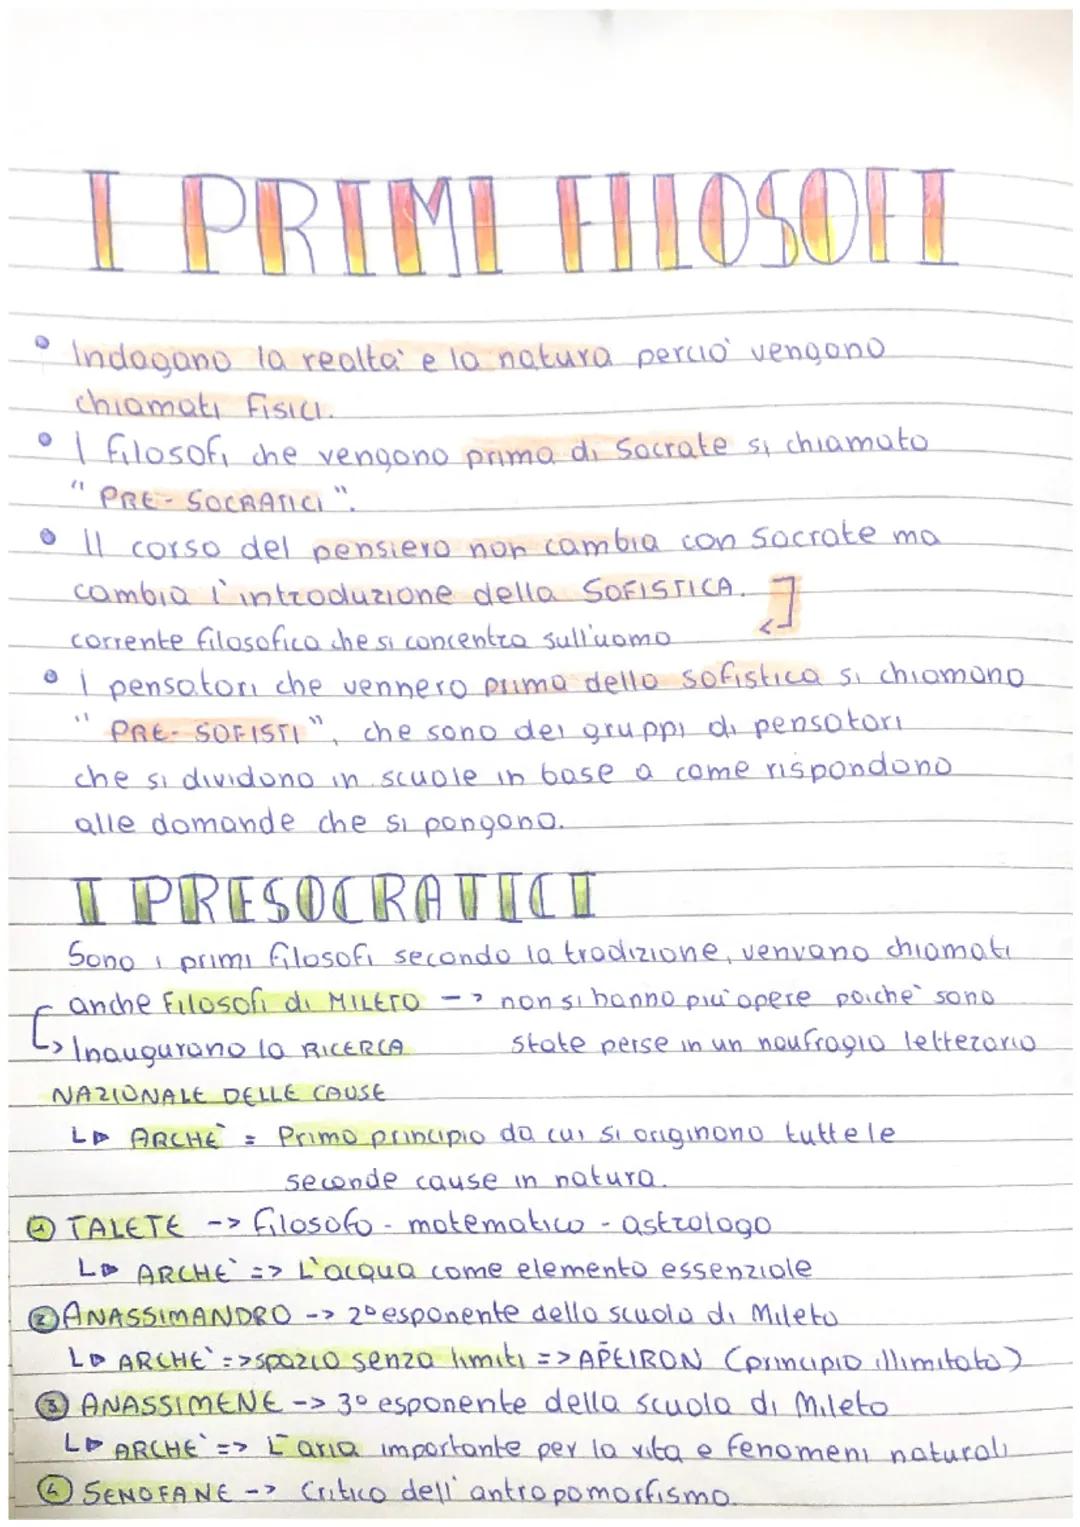 I PRIMI FILOSOFI
• Indagano la realta' e la natura percio' vengono
chiamati Fisici.
• I filosofi che vengono prima di Socrate si chiamato
" PRE-SOCRATICI ".
• Il corso del pensiero non cambia con Socrate ma
cambia l'introduzione della SOFISTICA.
corrente filosofica che si concentra sull'uomo
• I pensatori che vennero prima della sofistica si chiamano
" PRE-SOFISTI ", che sono dei gruppi di pensatori
che si dividono in scuole in base a come rispondono
alle domande che si pongono.
I PRESOCRATICI
Sono i primi filosofi secondo la tradizione, venvano chiamati
anche Filosofi di MILETO -> non si hanno piu' opere poiche' sono
↳ Inaugurano la RICERCA state perse in un naufragio letterario
NAZIONALE DELLE CAUSE
↳ ARCHE' = Primo principio da cui si originano tutte le
seconde cause in natura.
① TALETE -> filosofo - matematico - astrologo
↳ ARCHE' => L'acqua come elemento essenziale
② ANASSIMANDRO -> 2° esponente della scuola di Mileto
↳ ARCHE' => spazio senza limiti => APEIRON (principio illimitato)
③ ANASSIMENE -> 3° esponente della scuola di Mileto
↳ ARCHE' => L'aria importante per la vita e fenomeni naturali
④ SENOFANE -> Critico dell'antropomorfismo.